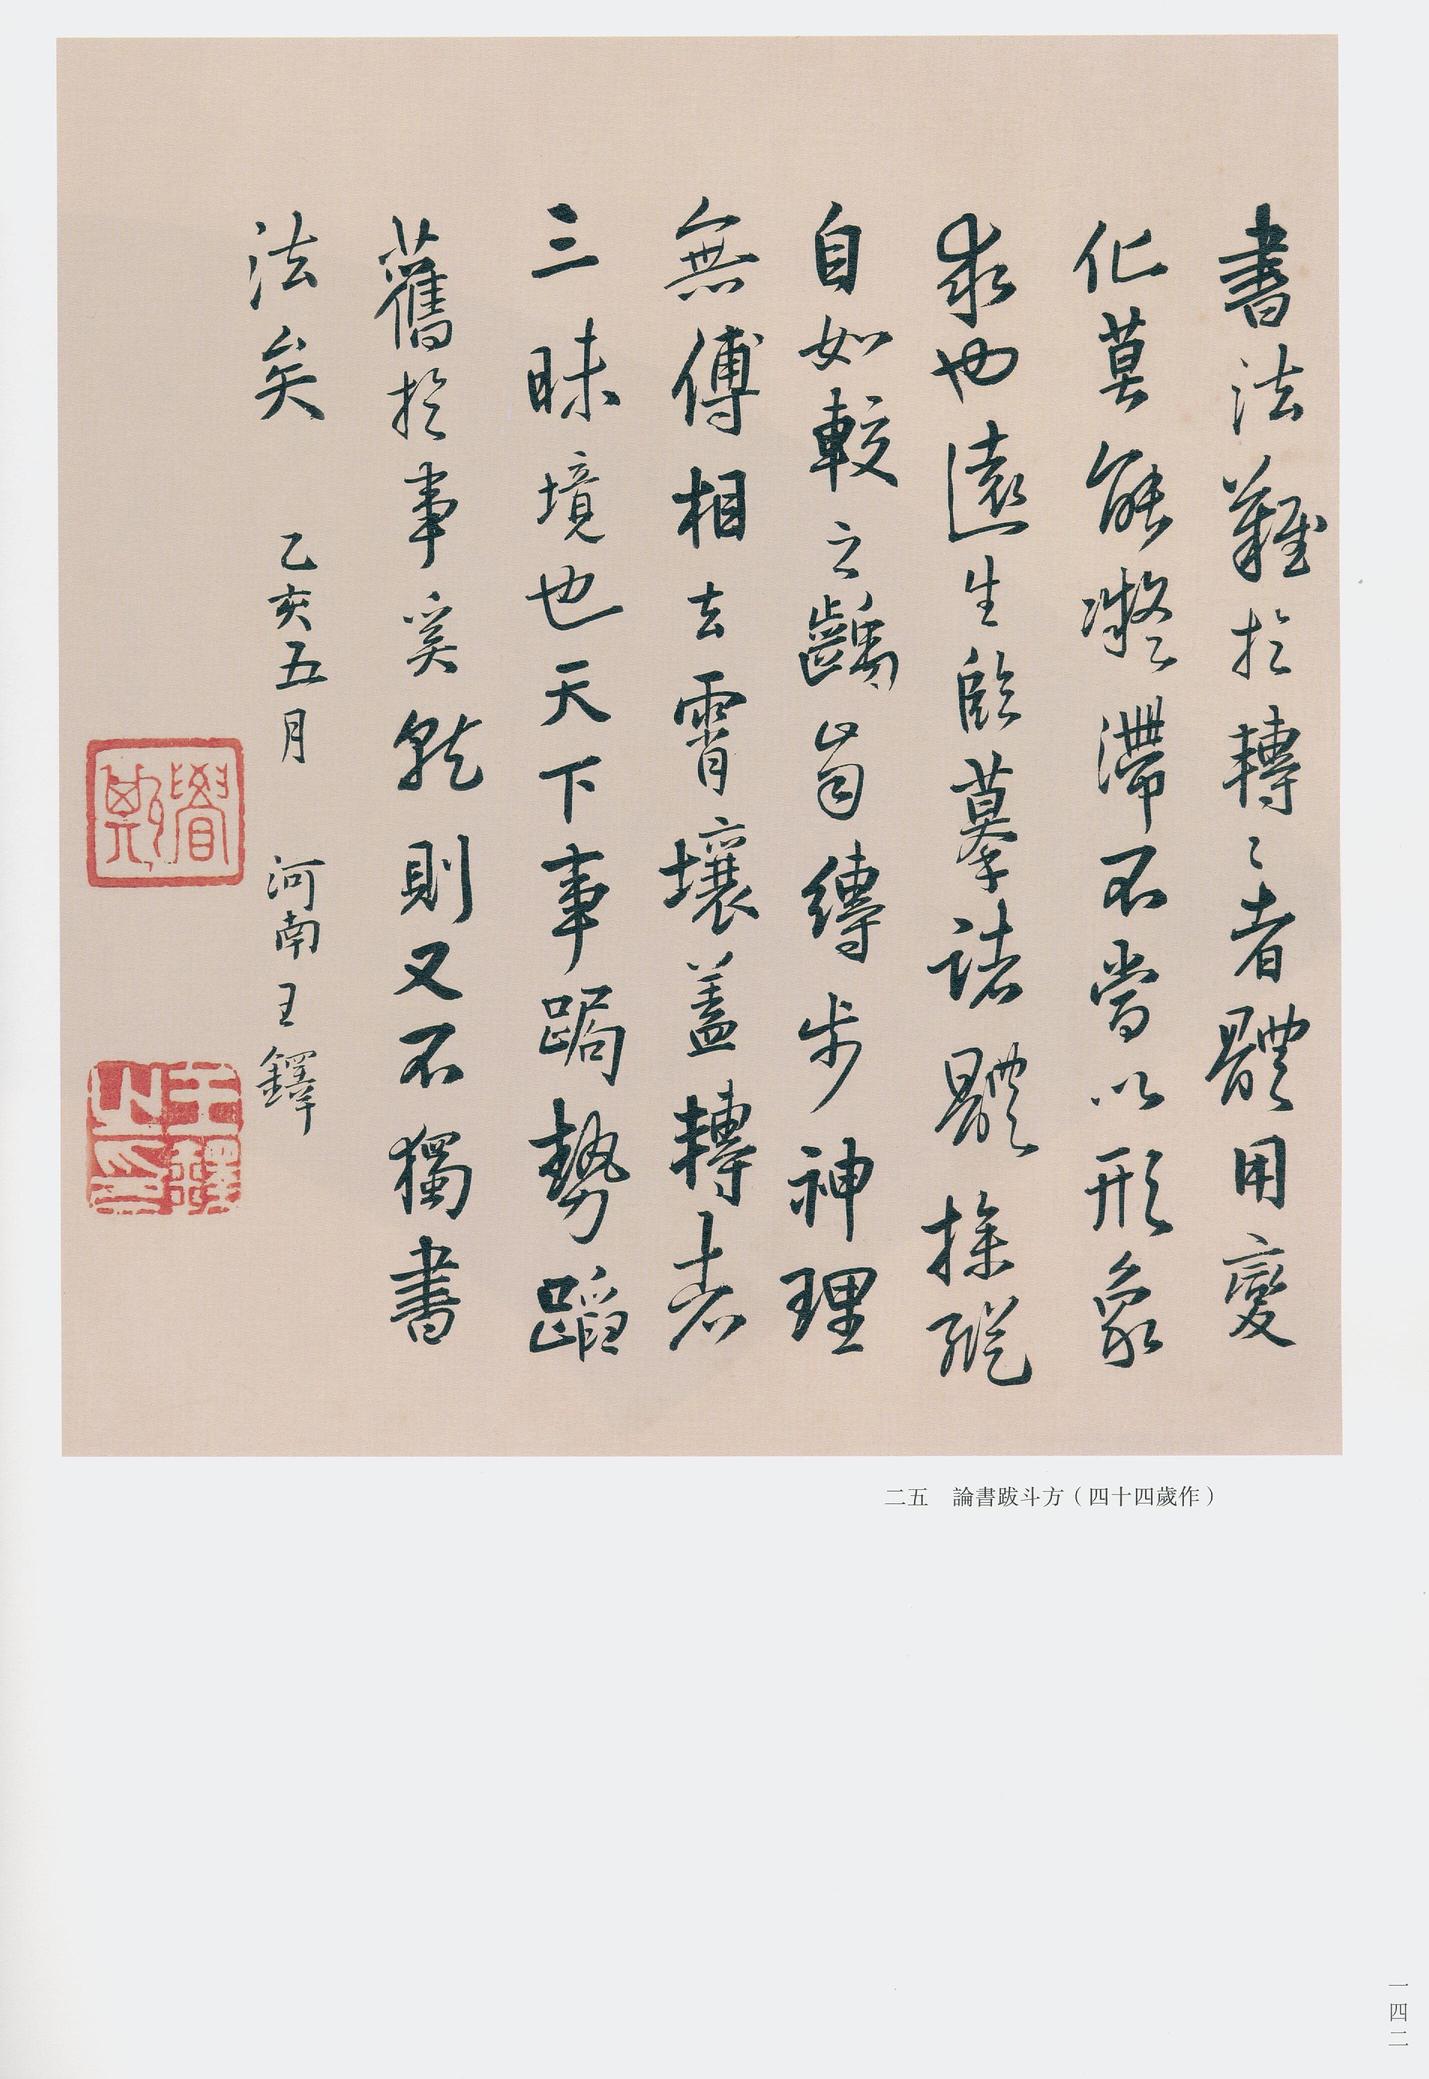 書法難於轉轉者體用變
化莫能凝滯不當以形象
求也遠生臨摹諸體操縱
自如較之齲齒縳步神理
無傅相去霄壤蓋轉者
三昧境也天下事跼勢蹈
舊於事奚就則又不獨書
法矣 乙亥五月 河南王鐸
王鐸之印
二五 論書跋斗方（四十四歲作）
一四二